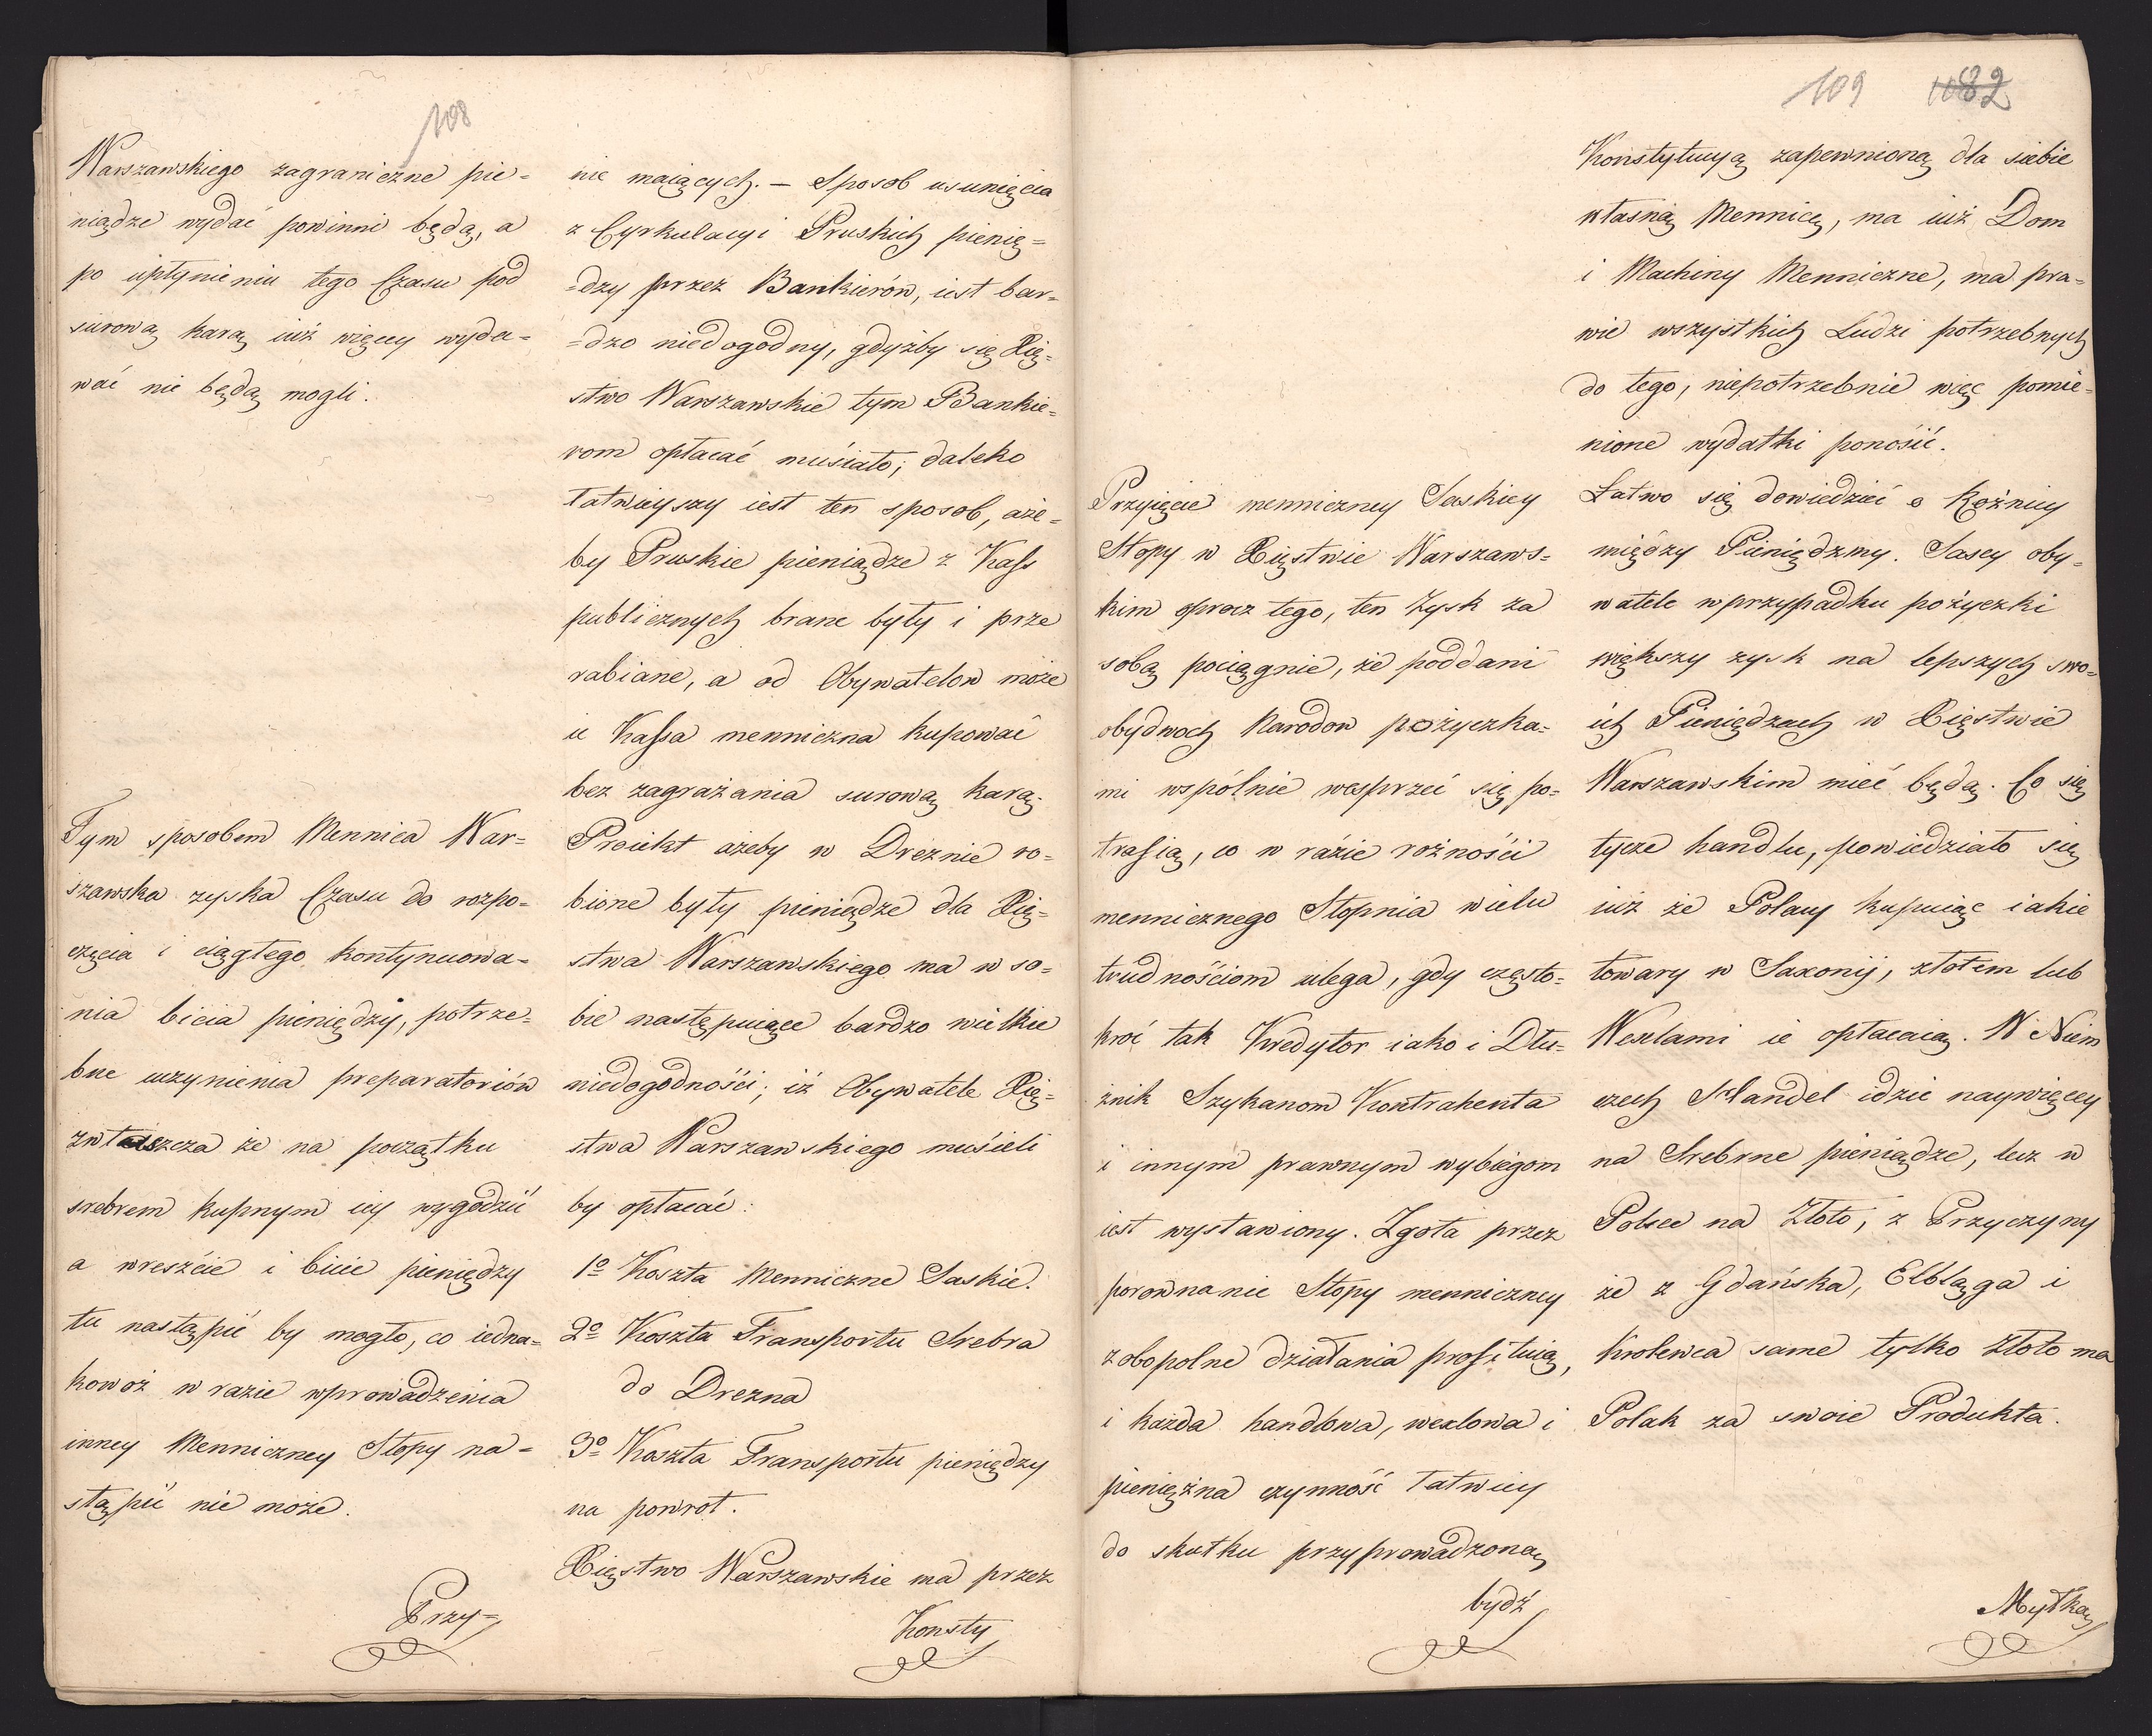 108
Warszawskiego zagraniczne pie=
niądze wydać powinni będą, a
po upłynieniu tego Czasu pod
surową karą iuż więcey wyda=
wać nie będą mogli.
Tym sposobem Mennica War=
szawska zyska Czasu do rozpo=
częcia i ciągłego kontynuowa=
nia bicia pieniędzy, potrze=
bne uczynienia preparatoriów
zwłaszcza że na początku
srebrem kupnym iey wygodzić
a wreszcie i bicie pieniędzy
tu nastąpić by mogło, co iedna=
kowoż w razie wprowadzenia
inney Menniczney Stopy na=
stąpić nie może.
Przy=
nie maiących. — Sposob usunięcia
z Cyrkulacyi Pruskich pienię=
=dzy przez Bankierów, iest bar=
=dzo niedogodny, gdyżby się Xię=
stwo Warszawskie tym Bankie=
rom opłacać musiało; daleko
łatwieyszy iest ten sposob, aże=
by Pruskie pieniądze z Kass
publicznych brane były i prze
rabiane, a od Obywatelow może
ie Kassa menniczna kupować
bez zagrażania surową karą.
Proiekt ażeby w Dreznie ro=
bione były pieniędze dla Xię=
stwa Warszawskiego ma w so=
bie następuiące bardzo wielkie
niedogodności; iż Obywatele Xię=
stwa Warszawskiego musieli
by opłacać:
1o Koszta Menniczne Saskie.
2o Koszta Transportu Srebra
do Drezna
3o Koszta Transportu pieniędzy
na powrot.
Xięstwo Warszawskie ma przez
Konsty
109 82
Przyięcie menniczney Saskiey
Stopy w Xięstwie Warszaws=
kim oprocz tego, ten Zysk za
sobą pociągnie, że poddani
obydwoch Narodow pożyczka=
mi wspólnie wesprzeć się po=
trafią, co w razie rożności
mennicznego Stopnia wielu
trudnościom ulega, gdy często=
kroć tak Kredytor iako i Dłu=
żnik Szykanom Kontrahenta
i innym prawnym wybiegom
iest wystawiony. Zgoła przez
porownanie Stopy menniczney
zobopolne działania profituią,
i każda handlowa, wexlowa i
pieniężna czynność łatwiey
do skutku przyprowadzoną
bydź
Konstytucyą zapewnioną dla siebie
własną Mennicę, ma iuż Dom
i Machiny Menniczne, ma pra=
wie wszystkich Ludzi potrzebnych
do tego, niepotrzebnie więc pomie=
nione wydatki ponosić.
Łatwo się dowiedzieć o Rożnicy
między Pieniędzmy. Sascy oby=
watele w przypadku pożyczki
większy zysk na lepszych swo=
ich Pieniędzach w Xięstwie
Warszawskim mieć będą. Co się
tycze handlu, powiedziało się
iuż że Polacy kupuiąc iakie
towary w Saxonij, złotem lub
Wexlami ie opłacaią. W Niem
czech Handel idzie naywięcey
na Srebrne pieniądze, lecz w
Polsce na Złoto, z Przyczyny
że z Gdańska, Elbląga i
Krolewca same tylko Złoto ma
Polak za swoie Produkta.
Mytką